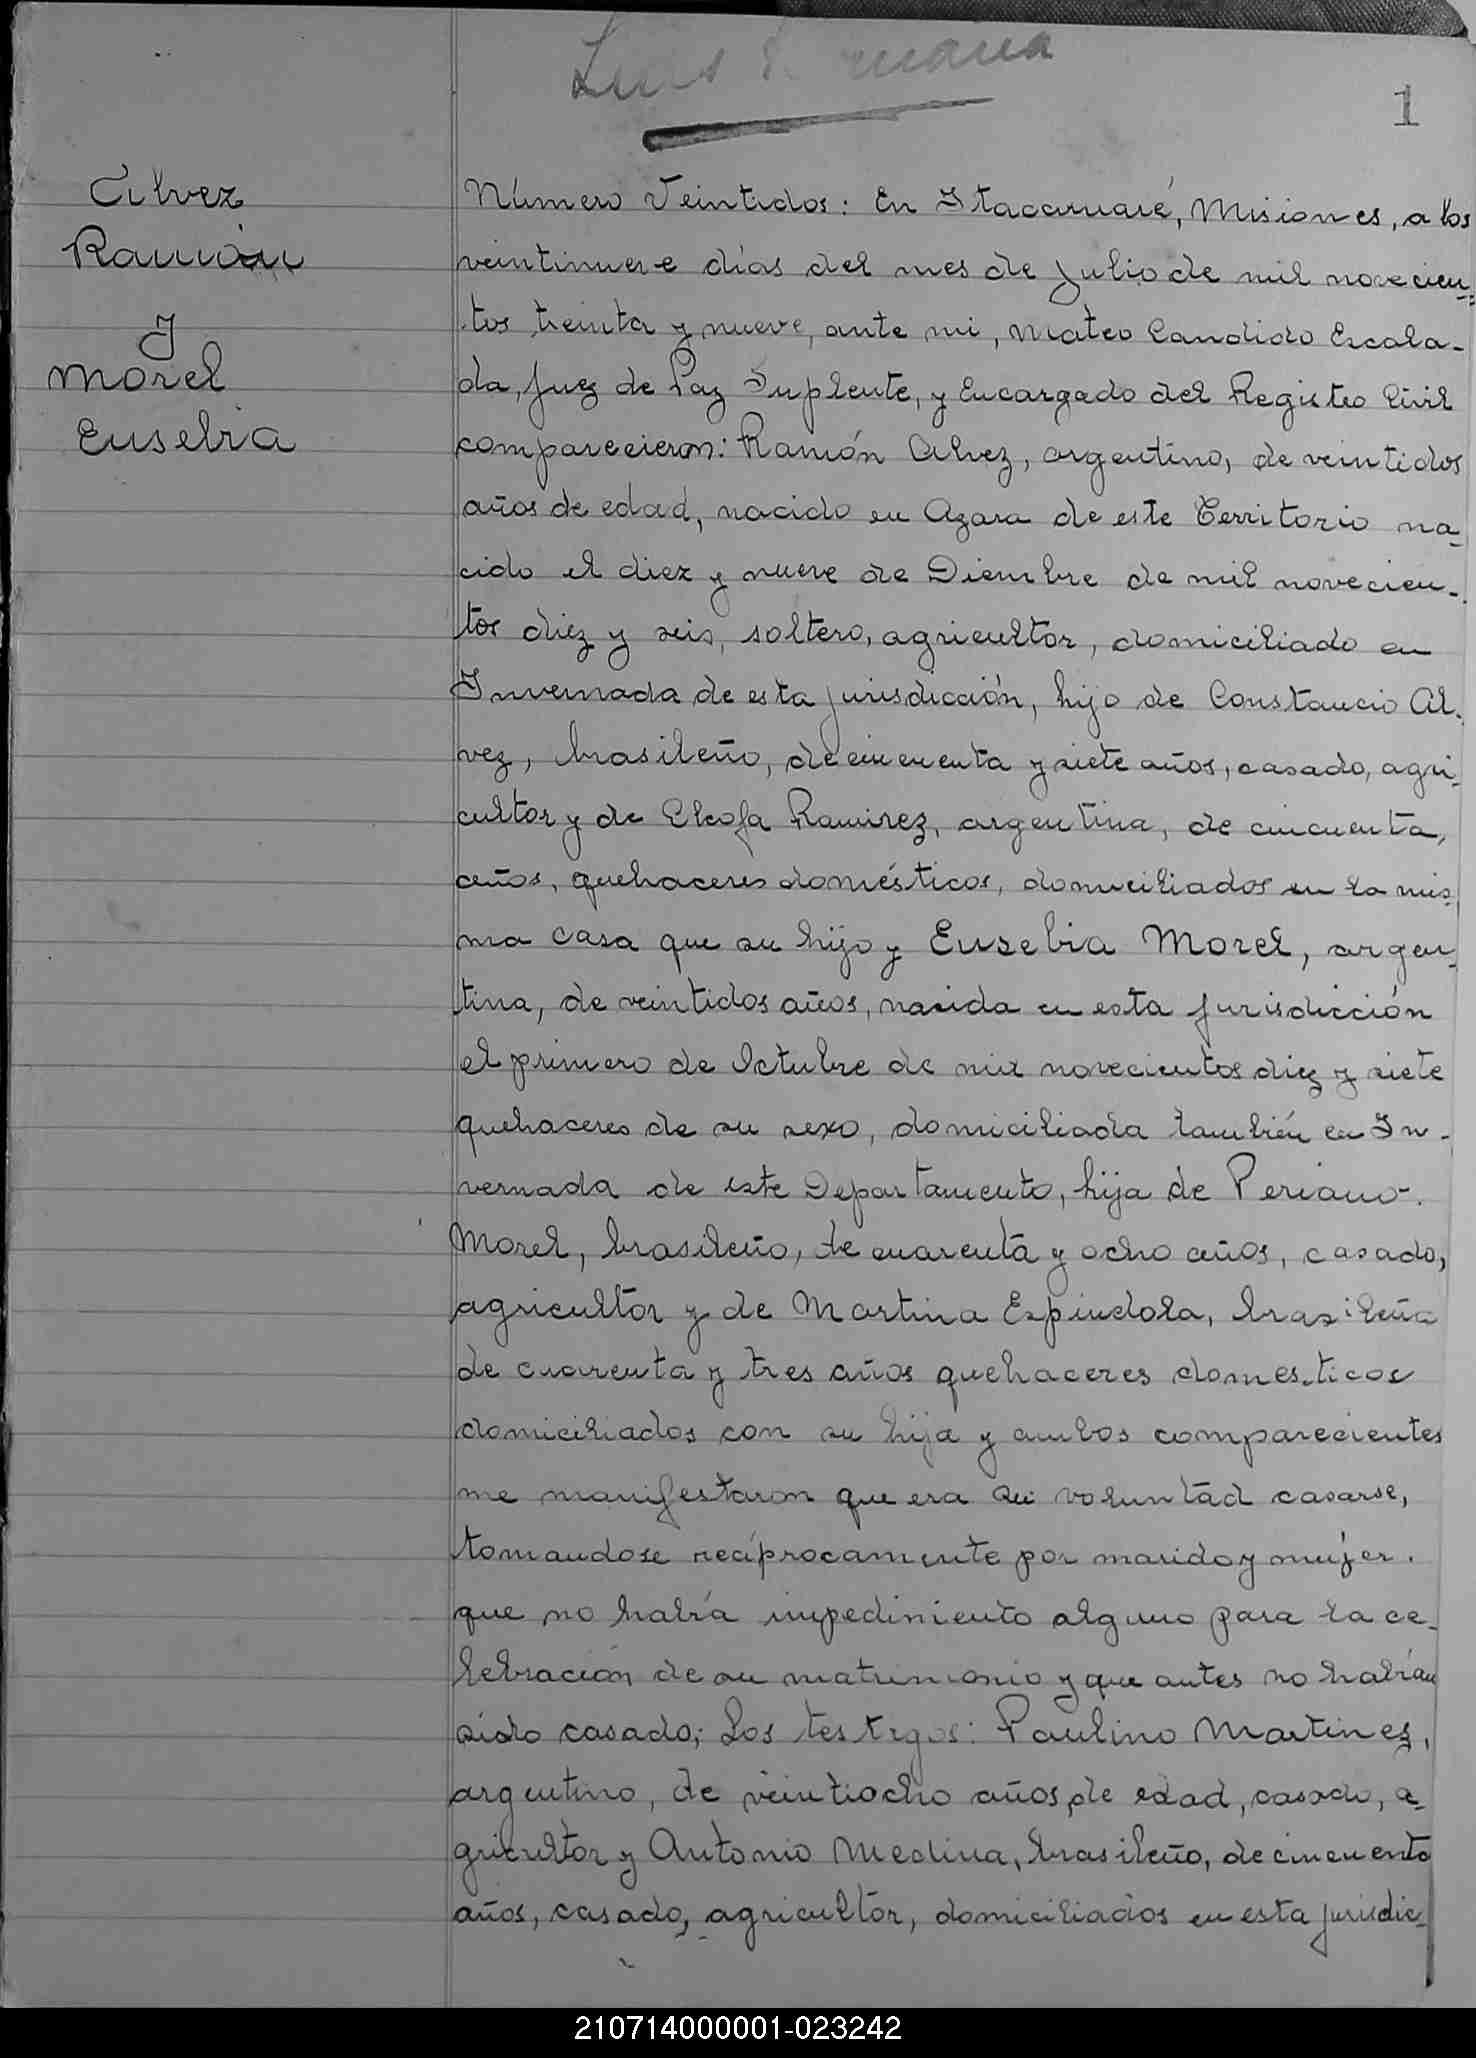 Luis
1
Alvez
Ramón
Y
Morel
Eusebia
Número Veintidos: En Itacaruaré, Misiones, a los
veintinueve días del mes de Julio de mil novecien-
tos treinta y nueve, ante mi, Mateo Candido Escala-
da, Juez de Paz Suplente, y Encargado del Registro Civil
comparecieron: Ramón Alvez, argentino, de veintidos
años de edad, nacido en Azara de este Territorio na-
cido el diez y nueve de Diembre de mil novecien-
tos diez y seis, soltero, agricultor, domiciliado en
Invernada de esta jurisdicción, hijo de Constancio Al-
vez, brasileño, de cincuenta y siete años, casado, agri-
cultor y de Eleofa Ramirez, argentina, de cincuenta,
años, quehaceres domésticos, domiciliados en la mis-
ma casa que su hijo y Eusebia Morel, argen-
tina, de veintidos años, nacida en esta jurisdicción
el primero de Octubre de mil novecientos diez y siete
quehaceres de su sexo, domiciliada también en In-
vernada de este Departamento, hija de Periano.
Morel, brasileño, de cuarenta y ocho años, casado,
agricultor y de Martina Espindola, brasileña
de cuarenta y tres años quehaceres domesticos
domiciliados con su hija y ambos comparecientes
me manifestaron que era su voluntad casarse,
tomandose recíprocamente por marido y mujer.
que no había impedimiento alguno para la ce-
lebración de su matrimonio y que antes no habían
sido casado; Los testigos: Paulino Martinez,
argentino, de veintiocho años de edad, casado, a-
gricultor y Antonio Medina, brasileño, de cincuenta
años, casado, agricultor, domiciliados en esta jurisdic-
210714000001-023242